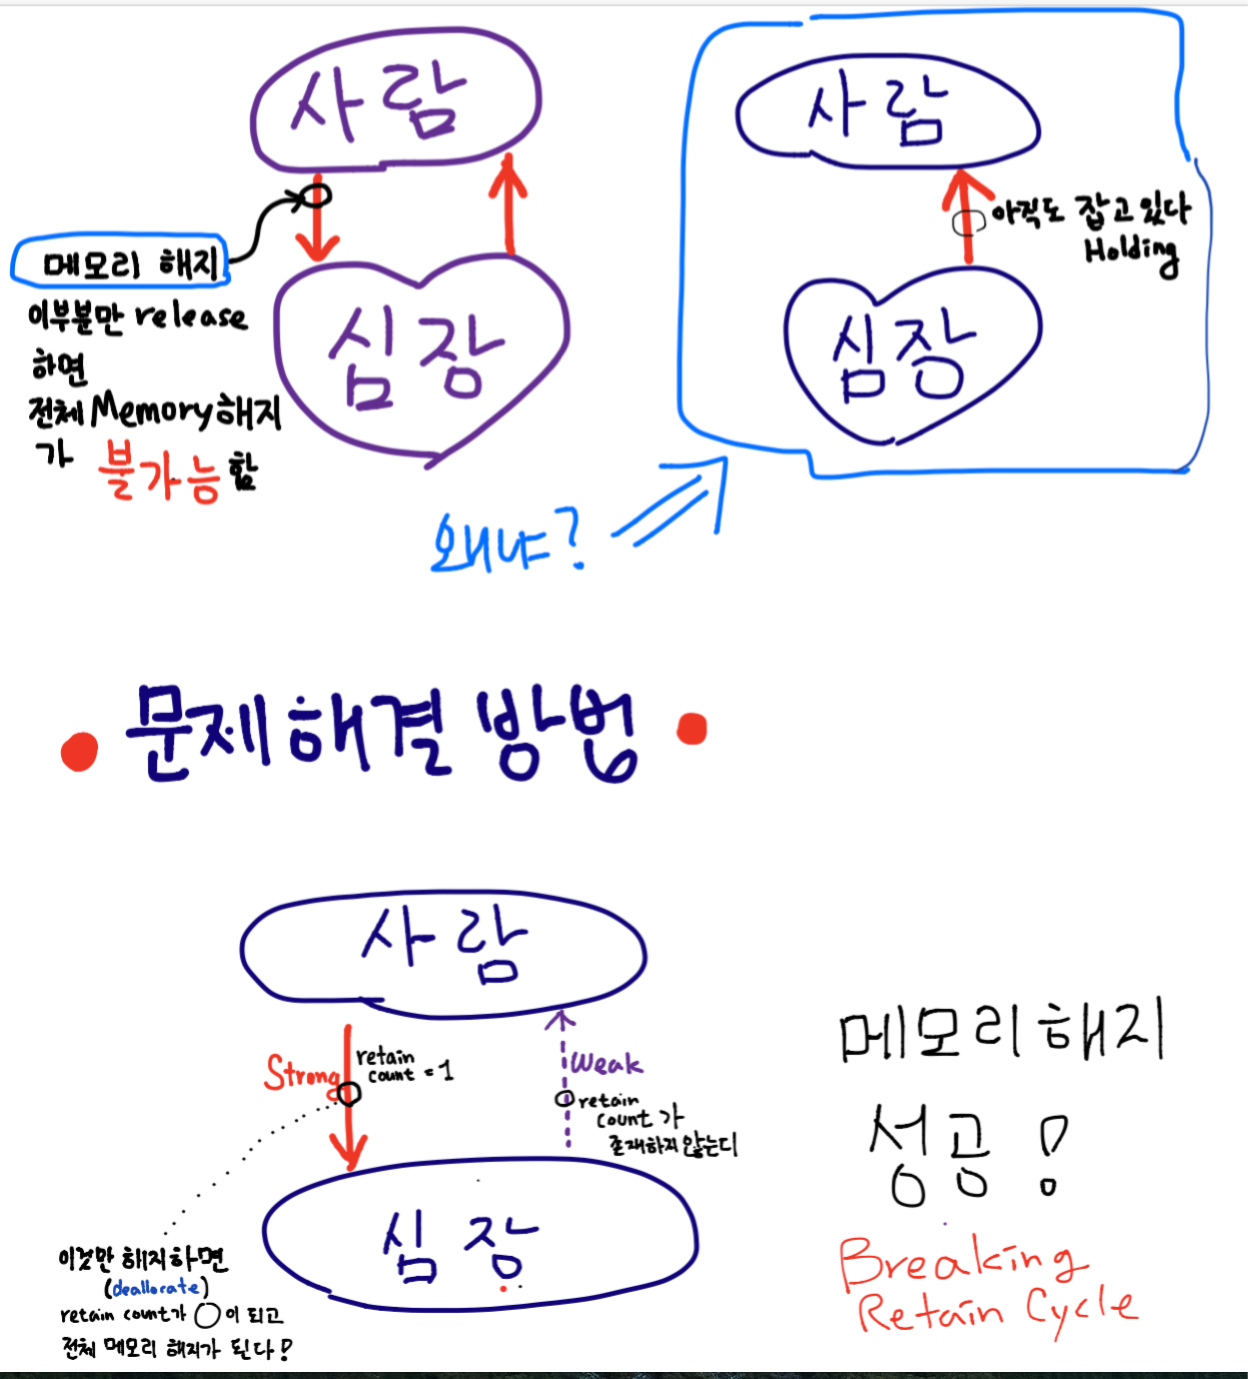 사람
메모리 해지
이부분만 release
하면
전체 Memory 해지
가 불가능 함
심장
사람
아직도 잡고 있다
Holding
심장
왜냐?
문제해결 방법
사람
Strong
retain
count = 1
Weak
retain
count 가
존재하지 않는디
심장
이것만 해지하면
(deallocate)
retain count가 0이 되고
전체 메모리 해지가 된다!
메모리 해지
성공!
Breaking
Retain Cycle